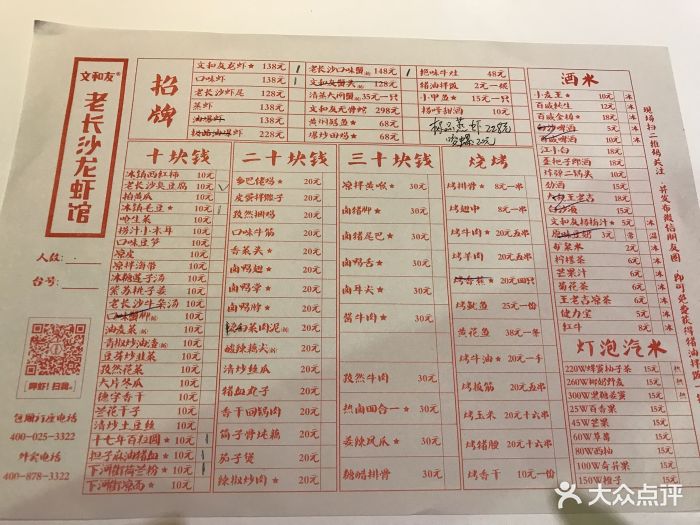 文和友®
老长沙龙虾馆
人数：
台号：
嘿虾！扫我。
包厢订座电话
400-025-3322
外卖电话
400-878-3322
招牌
文和友龙虾★ 138元
口味虾 138元
老长沙虾尾 128元
蒸虾 138元
油爆虾 138元
极品油爆虾 228元
老长沙口味蟹 148元
文和友蟹头 128元
清蒸大闸蟹 35元一只
文和友无骨蛇 298元
黄州冠鱼 68元
爆炒田鸡 68元
绝味牛灶 48元
猪油拌饭 2元一碗
小甲鱼★ 15元一只
杨咩甜酒 10元
极品蒸虾 228元
嗦螺 32元
十块钱
冰镇西红柿 10元
老长沙臭豆腐 10元
拍黄瓜 10元
冰镇毛豆★ 10元
呛生菜 10元
捞汁小木耳 10元
口味豆笋 10元
凉皮 10元
凉拌海带 10元
冰糖莲子汤 10元
紫苏桃子姜 10元
老长沙牛杂汤 10元
口味蟹脚 10元
油麦菜 10元
青椒炒油渣 10元
豆芽炒韭菜 10元
孜然花菜 10元
大片冬瓜 10元
德字香干 10元
兰花干子 10元
清炒土豆丝 10元
十七年百归园★ 10元
担子麻油猪血 10元
下河街荷兰粉 10元
下河街凉面★ 10元
二十块钱
乡巴佬鸡 20元
皮蛋拌擂子 20元
孜然捆鸡 20元
口味牛筋 20元
香菜头 20元
卤鸭翅★ 20元
卤鸭掌 20元
卤鸭脖★ 20元
菜肉泥 20元
酸辣藕尖 20元
清炒丝瓜 20元
猪血丸子 20元
香干回锅肉 20元
筒子骨炖藕 20元
茄子煲 20元
辣椒炒肉★ 20元
三十块钱
凉拌黄喉★ 30元
卤猪脚 30元
卤猪尾巴★ 30元
卤鸭舌★ 30元
卤耳尖 30元
酱牛肉★ 30元
孜然牛肉 30元
热卤四合一★ 30元
姜辣凤爪★ 30元
糖醋排骨 30元
烧烤
烤排骨★ 8元一串
烤翅中 8元一串
烤牛肉★ 20元五串
烤羊肉 20元五串
烤香蕉★ 20元四只
烤鱿鱼 25元一份
黄花鱼 38元一条
烤牛油★ 20元一手
烤板筋 20元五串
烤玉米 20元十六串
烤猪腰 20元十六串
烤香干 10元一份
酒水
小麦王★ 10元 冰
百威纯生 12元 冰
百威金樽★ 18元 冰
白沙啤酒 5元 冰
百威啤酒 10元 冰
江小白 18元
歪把子郎酒 18元
炸弹二锅头 15元
劲酒 15元
大王老吉 10元 冰
文和友杨梅汁★ 5元 冰
原味豆奶 3元 常 温 冰
矿泉水 2元 冰
柠檬茶 6元 冰
芒果汁 6元 冰
菊花茶 6元 冰
王老吉凉茶 6元 冰
健力宝 6元 冰
红牛 8元 冰
灯泡汽水
220W蜂蜜柚子茶 15元 热
260W椰奶野麦 15元
300W黑糖姜蜜 15元 热
25W百香果 15元
45W芒果 15元
60W草莓 15元
80W西柚 15元
100W奇异果 15元
150W橙子 15元
现场扫二维码关注，并发布微信朋友圈，即可免费获得猪油拌饭
大众点评